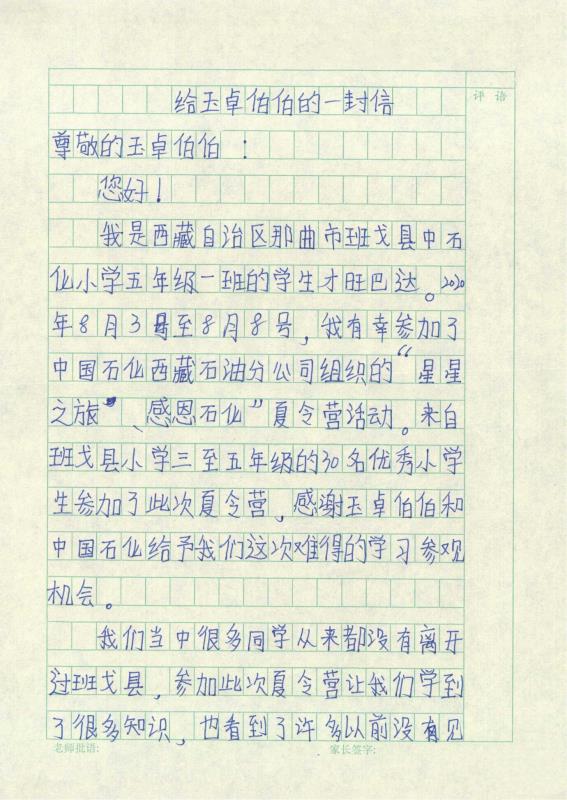 评 语
给玉卓伯伯的一封信
尊敬的玉卓伯伯：
您好！
我是西藏自治区那曲市班戈县中石
化小学五年级一班的学生才旺巴达。2020
年8月3号至8月8号，我有幸参加了
中国石化西藏石油分公司组织的“星星
之旅”、感恩石化”夏令营活动。来自
班戈县小学三至五年级的30名优秀小学
生参加了此次夏令营，感谢玉卓伯伯和
中国石化给予我们这次难得的学习参观
机会。
我们当中很多同学从来都没有离开
过班戈县，参加此次夏令营让我们学到
了很多知识，也看到了许多以前没有见
老师批语: 家长签字: